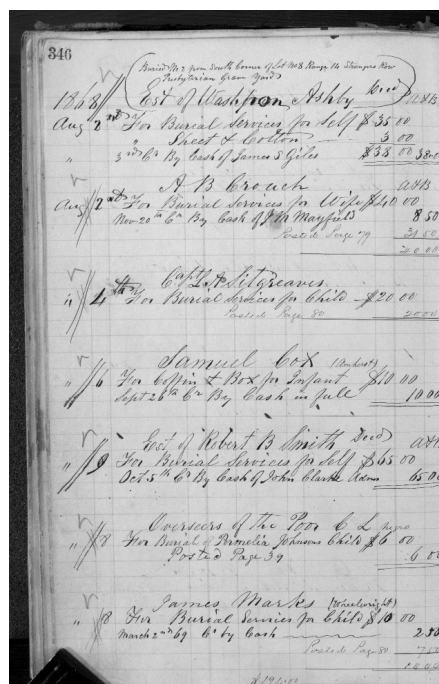 346
Buried No 2 from South Corner of Lot No 8 Range 14 Strangers Row
Presbyterian Grave Yard
1868 Est of Washington Ashby Decd A&B
Aug 2nd For Burial Services for Self $35 00
" Sheet & Cotton 3 00
" 3rd Cr By Cash of James S Giles $38 00 38 00
A B Crouch A&B
Aug 2nd For Burial Services for Wife $40 00
Nov 20th Cr By Cash of J M Mayfield 8 50
Posted Page 79 31 50
40 00
Capt L A Sitgreaves
" 4th For Burial Services for Child $20 00
Posted Page 80 20 00
Samuel Cox (Amherst)
" 6 For Coffin & Box for Infant $10 00
Sept 26th Cr By Cash in full 10 00
Est of Robert B Smith Decd A&B
" 9 For Burial Services for Self $65 00
Oct 5th Cr By Cash of John Clarke Admr 65 00
Overseers of the Poor C L negro
" 8 For Burial of Permelia Johnsons Child $6 00
Posted Page 39 6 00
James Marks (Wheelwright)
" 8 For Burial Services for Child $10 00
March 2nd 69 Cr by Cash 2 50
Posted Page 80 7 50
10 00
$191 00